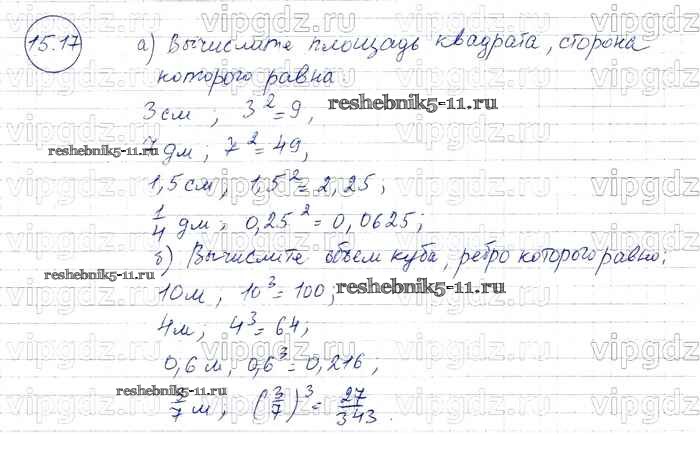 15.17 а) Вычислите площадь квадрата, сторона
которого равна
3 см ; 3² = 9, reshebnik5-11.ru
reshebnik5-11.ru
7 дм ; 7² = 49,
1,5 см ; 1,5² = 2,25 ;
1/4 дм ; 0,25² = 0,0625 ;
б) Вычислите объем куба, ребро которого равно:
reshebnik5-11.ru
10 м, 10³ = 100; reshebnik5-11.ru
4 м; 4³ = 64;
0,6 м, 0,6³ = 0,216 ;
reshebnik5-11.ru
3/7 м, (3/7)³ = 27/343.
vipgdz.ru